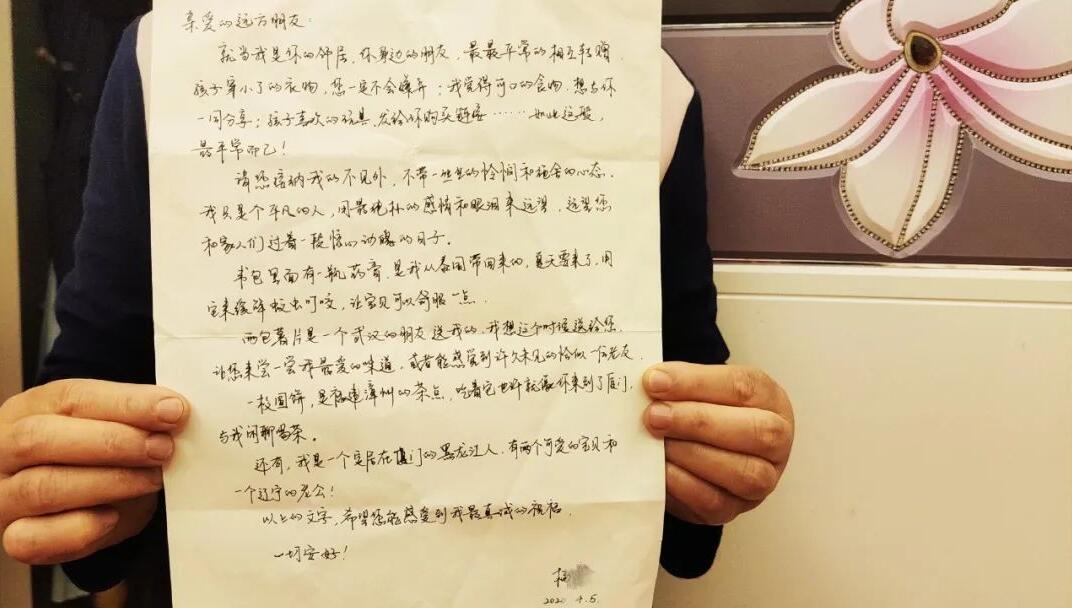 亲爱的远方朋友：
就当我是你的邻居，你身边的朋友，最最平常的相互转赠，
孩子穿小了的衣物，您一定不会嫌弃；我觉得可口的食物，想与你
一同分享；孩子喜欢的玩具，发给你购买链接……如此这般，
最平常而已！
请您接纳我的不见外，不带一丝的怜悯和施舍的心态。
我只是个平凡的人，用最纯朴的感情和眼泪来远望，远望您
和家人们过着一段惊心动魄的日子。
书包里面有一瓶药膏，是我从泰国带回来的，夏天要来了，用
它来缓解蚊虫叮咬，让宝贝可以舒服一点。
两包薯片是一个武汉的朋友送我的，我想这个时候送给您，
让您来尝一尝那最爱的味道，或者能感觉到许久未见的恰似一位老友。
一枚圆饼，是福建漳州的茶点，吃着它也许就像你来到了厦门，
与我闲聊喝茶。
还有，我是一个定居在厦门的黑龙江人，有两个可爱的宝贝和
一个辽宁的老公！
以上的文字，希望您能感受到我最真诚的祝福。
一切安好！
2020 4.5.